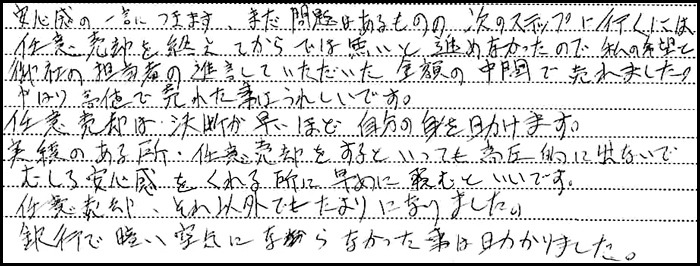 安心感の一言につきます、まだ問題はあるものの次のステップに行くには
任意売却を終えてからでは無いと進めなかったので私の希望と
御社の担当者の進言していただいた金額の中間で売れました。
やはり高値で売れた事はうれしいです。
任意売却は決断が早いほど自分の身を助けます。
実績のある所、任意売却をするといっても高圧的に出ないで
むしろ安心感をくれる所に早めに頼むといいです。
任意売却、それ以外でもたよりになりました。
銀行で暗い空気にならなかった事は助かりました。